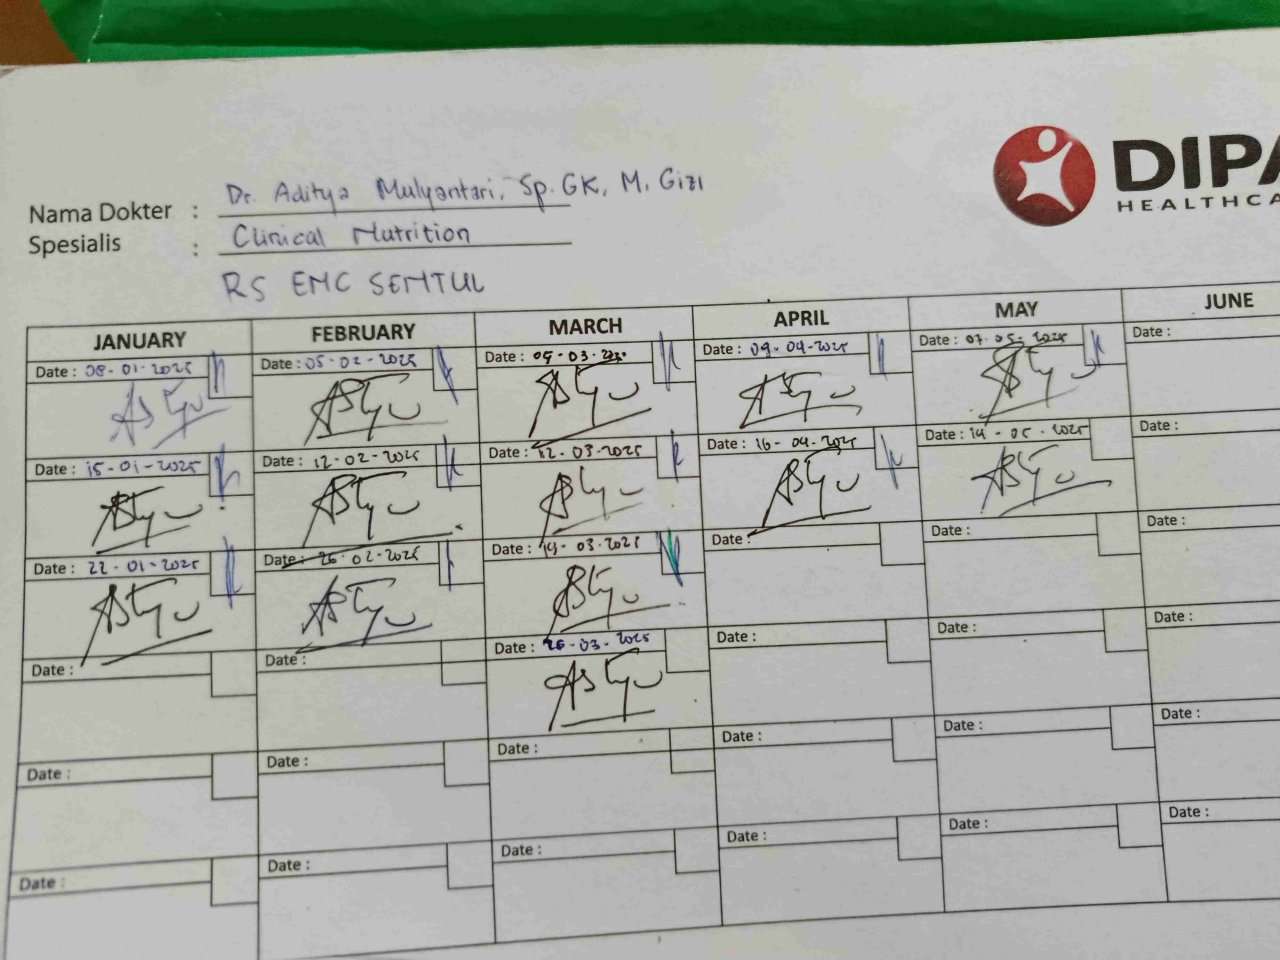 DIPA
HEALTHCA
Nama Dokter : Dr. Aditya Mulyantari, Sp.GK, M. Gizi
Spesialis : Clinical Nutrition
RS EMC SENTUL
JANUARY FEBRUARY MARCH APRIL MAY JUNE
Date : 08-01-2025 Date : 05-02-2025 Date : 05-03- Date : 09-04-2025 Date : 07-05-2025 Date :
Date : 15-01-2025 Date : 12-02-2025 Date : 12-03-2025 Date : 16-04-2025 Date : 14-05-2025 Date :
Date : 22-01-2025 Date : 26-02-2025 Date : 19-03-2025 Date : Date : Date :
Date : Date : Date : 26-03-2025 Date : Date : Date :
Date : Date : Date : Date : Date : Date :
Date : Date : Date : Date : Date : Date :